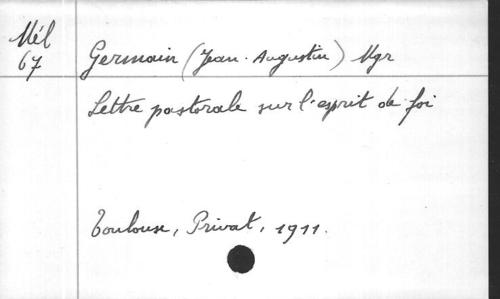 Mél
67
Germain (Jean-Augustin) Mgr
Lettre pastorale sur l'esprit de foi
Toulouse, Privat, 1911.